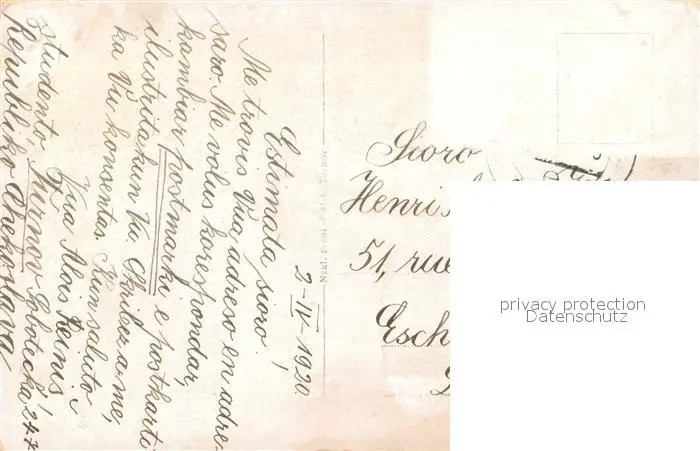 2–IV–1920.
Estimata sioro!
Me trovis Vua adreso en adre-
saro. Me volus korespondar,
kambiar postmarki e postkarti
ilustrita kun Vu. Skribez a me,
ka Vu konsentas. Kun saluto
Vua Alois Reinis
studento, Turnov Sobotecká 247
Republiko Chekoslava
Sioro
Henri
51, rue
Esch
privacy protection
Datenschutz